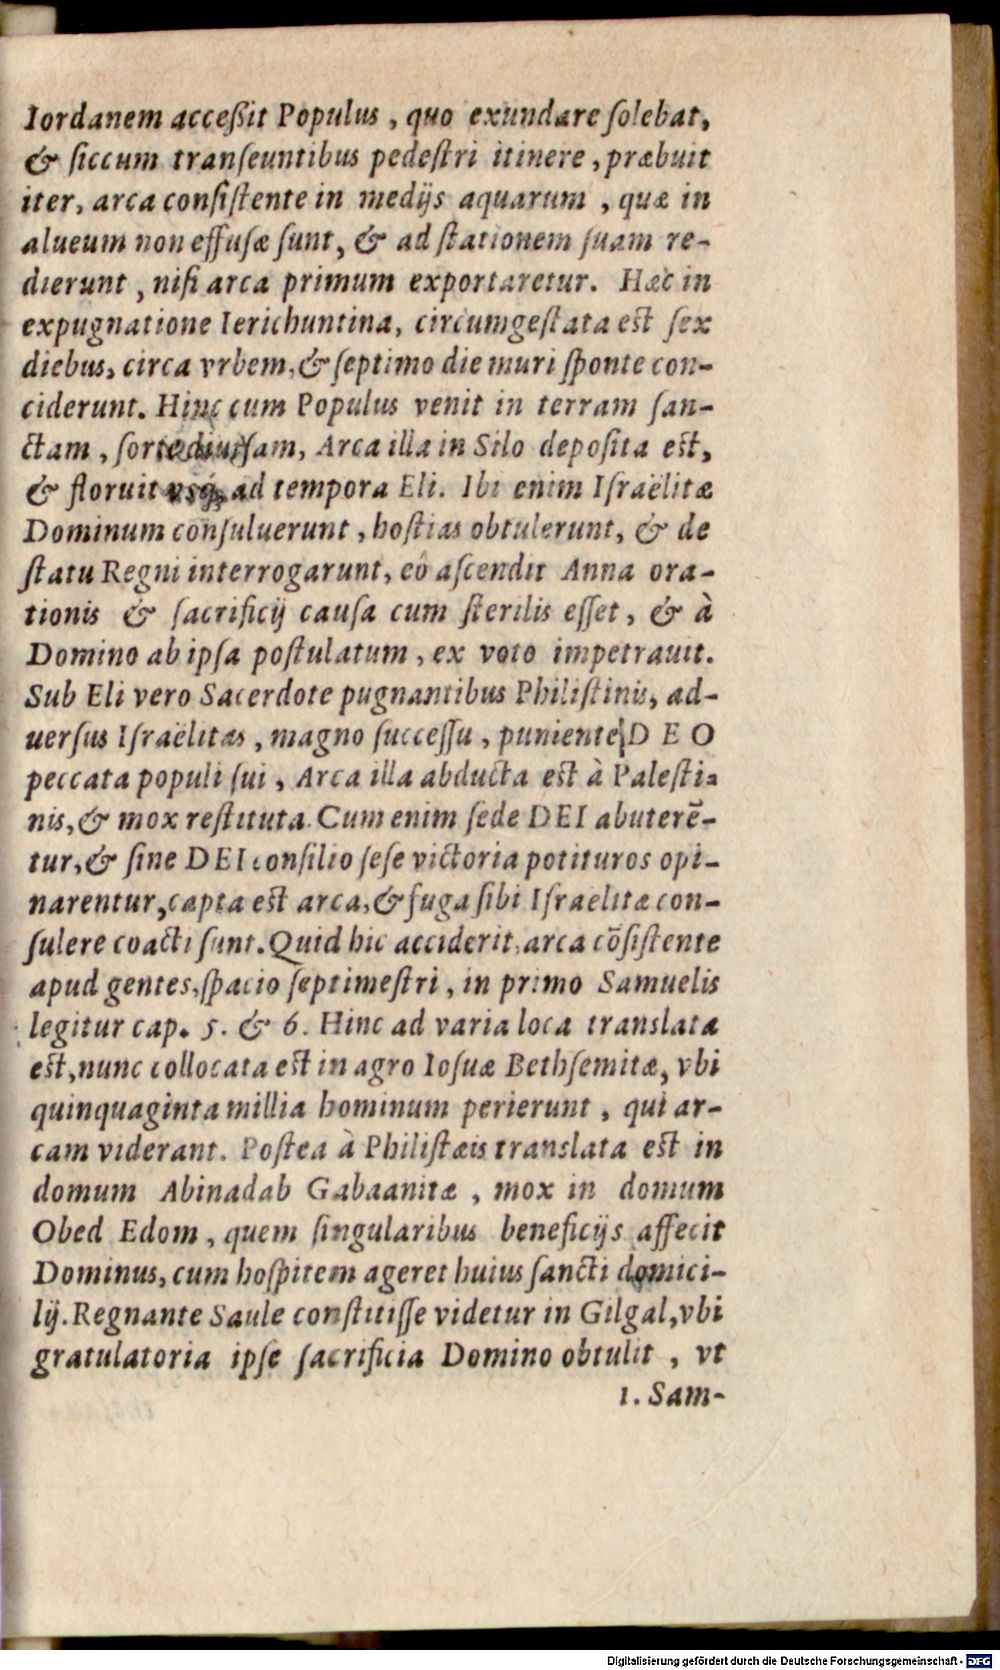 Iordanem acceßit Populus, quo exundare ſolebat,
& ſiccum tranſeuntibus pedeſtri itinere, præbuit
iter, arca conſiſtente in medijs aquarum, quæ in
alueum non effuſæ ſunt, & ad ſtationem ſuam re-
dierunt, niſi arca primum exportaretur. Hæc in
expugnatione Ierichuntina, circumgeſtata eſt ſex
diebus, circa vrbem, & ſeptimo die muri ſponte con-
ciderunt. Hinc cum Populus venit in terram ſan-
ctam, ſorte diuiſam, Arca illa in Silo depoſita eſt,
& floruit vsq́; ad tempora Eli. Ibi enim Iſraëlitæ
Dominum conſuluerunt, hoſtias obtulerunt, & de
ſtatu Regni interrogarunt, eò aſcendit Anna ora-
tionis & ſacrificij cauſa cum ſterilis eſſet, & à
Domino ab ipſa poſtulatum, ex voto impetrauit.
Sub Eli vero Sacerdote pugnantibus Philiſtinis, ad-
uerſus Iſraëlitas, magno ſucceſſu, puniente DEO
peccata populi ſui, Arca illa abducta eſt à Paleſti-
nis, & mox reſtituta. Cum enim ſede DEI abuterē-
tur, & ſine DEI conſilio ſeſe victoria potituros opi-
narentur, capta eſt arca, & fuga ſibi Iſraelitæ con-
ſulere coacti ſunt. Quid hic acciderit, arca cōſiſtente
apud gentes, ſpacio ſeptimeſtri, in primo Samuelis
legitur cap. 5. & 6. Hinc ad varia loca translata
eſt, nunc collocata eſt in agro Ioſuæ Bethſemitæ, vbi
quinquaginta millia hominum perierunt, qui ar-
cam viderant. Poſtea à Philiſtæis translata eſt in
domum Abinadab Gabaanitæ, mox in domum
Obed Edom, quem ſingularibus beneficijs affecit
Dominus, cum hoſpitem ageret huius ſancti domici-
lij. Regnante Saule conſtitiſſe videtur in Gilgal, vbi
gratulatoria ipſe ſacrificia Domino obtulit, vt
1. Sam-
Digitalisierung gefördert durch die Deutsche Forschungsgemeinschaft - DFG